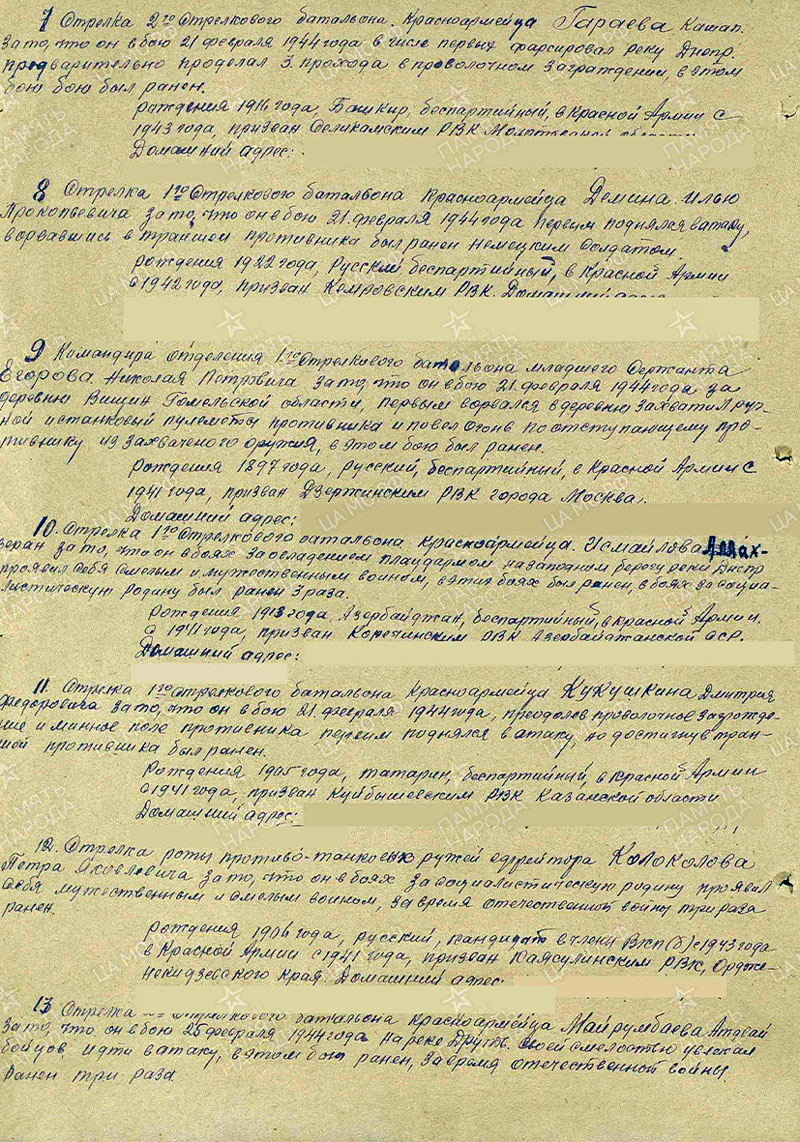 7 Стрелка 2го Стрелкового батальона. Красноармейца Гараева Кашап.
За то, что он в бою 21 февраля 1944 года в числе первых фарсировал реку Днепр.
предварительно проделал 3 прохода в проволочном заграждении, в этом
бою бою был ранен.
рождения 1916 года, Башкир, беспартийный, в Красной Армии с
1943 года, призван Соликамским РВК
Домашний адрес:
8 Стрелка 1го Стрелкового батальона Красноармейца Демина. Илью
Прокопьевича за то, что он в бою 21. февраля 1944 года первым поднялся в атаку,
ворвавшись в траншеи противника был ранен немецким солдатом.
рождения 1922 года, Русский беспартийный, в Красной Армии
с 1942 года, призван Кемровским РВК. Домашний адрес
9 Командира отделения 1го Стрелкового батальона младшего Сержанта
Егорова Николая Петровича за то, что он в бою 21. февраля 1944 года за
деревню Вищин Гомельской области, первым ворвался в деревню захватил руч-
ной и станковый пулеметы противника и повел огонь по отступающему про-
тивнику из захваченого оружия, в этом бою был ранен.
Рождения 1897 года, русский, беспартийный, в Красной Армии с
1941 года, призван Дзержинским РВК города Москва.
Домашний адрес:
10. Стрелка 1го Стрелкового батальона Красноармейца Исмайлова Аллах-
веран за то, что он в боях за овладением плацдармом на западном берегу реки Днепр
проявил себя смелым и мужественным воином, в этих боях был ранен, в боях за социа-
листическую родину был ранен 3 раза.
Рождения 1913 года, Азербайджан, беспартийный, в Красной Армии.
с 1941 года, призван РВК Азербайджанской ССР.
Домашний адрес:
11. Стрелка 1го Стрелкового батальона Красноармейца Кукушкина Дмитрия
Федоровича за то, что он в бою 21. февраля 1944 года, преодолев проволочное загражде-
ние и минное поле противника первим поднялся в атаку, но достигнув тран-
шей противника был ранен.
Рождения 1905 года, татарин, беспартийный, в Красной Армии
с 1941 года, призван Куйбышевским РВК Казанской области
Домашний адрес:
12. Стрелка роты противо-танковых ружей ефрейтора Колоколова
Петра Яковлевича за то, что он в боях за социалистическую родину проявил
себя мужественным и смелым воином, за время отечественной войны три раза
ранен.
Рождения 1906 года, русский, кандидат в члены ВКП(б) с 1943 года
в Красной Армии с 1941 года, призван Каясулинским РВК, Орджо-
некидзевского края. Домашний адрес.
13 Стрелка Стрелкового батальона Красноармейца Майрумбаева
За то, что он в бою 25 февраля 1944 года на реке Друть. своей смелостью увлекал
бойцов, идти в атаку, в этом бою ранен, за время отечественной войны.
ранен три раза.
ПАМЯТЬ НАРОДА
ЦА МО РФ